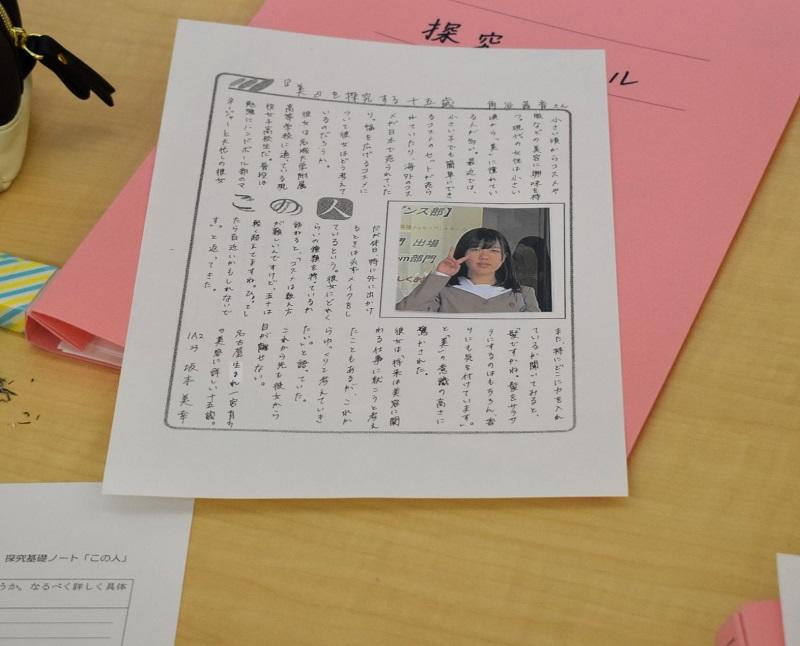 探究
ル
『美』を探究する十五歳
小さい頃からコスメや
服などの美容に興味を持
つ現代の女性は小さい
頃から、"美"に憧れてい
る人が多い。最近では、
小さい子でも簡単にでき
るコスメのセットが売ら
れていたり、海外のコス
メが日本で売られていた
り、幅を広げるコスメに
ついて彼女はどう考えて
いるのだろうか。
彼女は名城大学附属
高等学校に通っている現
役女子高校生だ。普段は
勉強にハンドボール部のマ
ネージャーと大忙しの彼女
この人
だが休日、特に外に出かけ
るときは必ずメイクをし
ているという。彼女にどれく
らいの種類を持っているか
訪ねると、「コスメは数え方
が難しいんですけど、五十は
軽く超えてますね。ひょっとし
たら百近いかもしれないで
す。」と返ってきた。
また、特にどこに力を入れ
ているか聞いてみると、
「髪ですかね。髪をサラサ
うにするのはもちろん、香
りにも気を付けています。」
と「美」の意識の高さに
驚かされた。
彼女は、「将来は美容に関
わる仕事に就こうと考え
たこともあるが、これか
らゆっくりと考えていき
たい。」と語っていた。
これから先も彼女から
目が離せない。
名古屋生まれ一宮育ち
の美容に詳しい十五歳。
1A2
坂本美幸
ンス部】
門 出場
om部門
しくお
探究基礎ノート「この人」
うか。なるべく詳しく具体